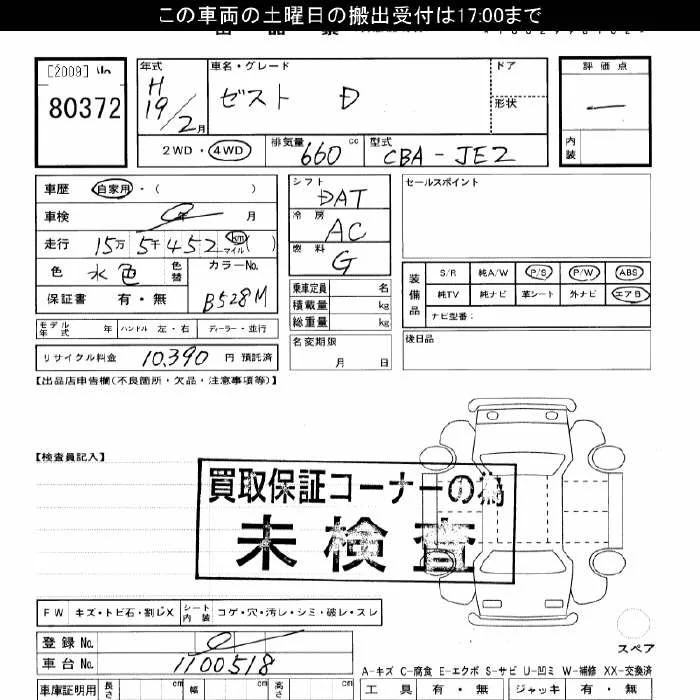 この車両の土曜日の搬出受付は17:00まで
[2009]
80372
年式
H
19/2月
車名・グレード
ゼスト D
ドア
形状
評価点
内装
2WD・4WD
排気量 660 cc
型式 CBA-JE2
車歴 自家用・( )
車検 0年 月
走行 15万5千452 km マイル( )
色 水色
色替
カラーNo.
B528M
保証書 有・無
シフト
DAT
冷房
AC
燃料
G
乗車定員 名
積載量 kg
総重量 kg
名変期限
月 日
セールスポイント
装備品
S/R 純A/W P/S P/W ABS
純TV 純ナビ 革シート 外ナビ エアB
ナビ型番:
後日品
モデル年式 年 ハンドル 左・右 ディーラー・並行
リサイクル料金 10,390 円 預託済
【出品店申告欄(不良箇所・欠品・注意事項等)】
【検査員記入】
買取保証コーナーの為
未検査
FW キズ・トビ石・割レX シート内装 コゲ・穴・汚レ・シミ・破レ・スレ
登録No. 0
車台No. 1100518
スペア
A-キズ C-腐食 E-エクボ S-サビ U-凹ミ W-補修 XX-交換済
車庫証明用 長さ cm 幅 cm 高さ cm
工具 有・無 ジャッキ 有・無